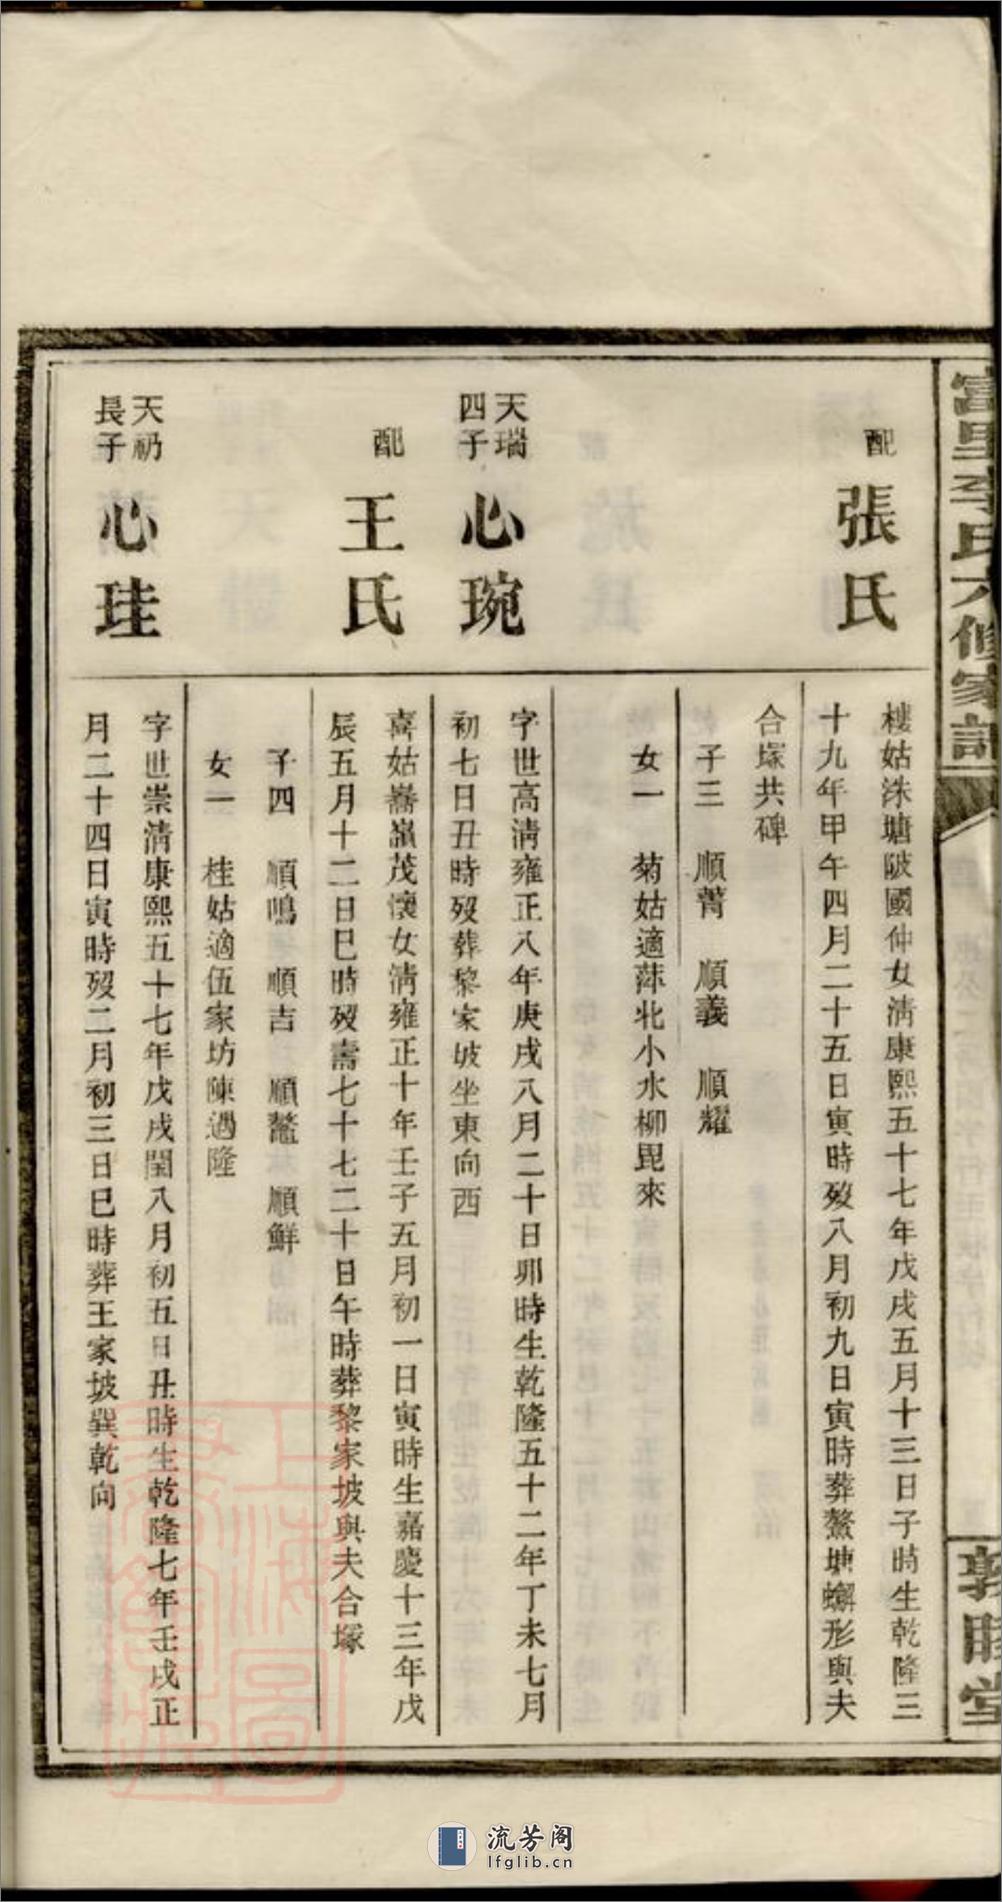 富里李氏六修家譜
敦睦堂
配
張氏
樓姑洙塘陂國仲女清康熙五十七年戊戌五月十三日子時生乾隆三
十九年甲午四月二十五日寅時歿八月初九日寅時葬鰲塘蠏形與夫
合塚共碑
子三 順菁 順義 順耀
女一 菊姑適萍北小水柳毘來
天瑞
四子
心琬
字世高清雍正八年庚戌八月二十日卯時生乾隆五十二年丁未七月
初七日丑時歿葬黎家坡坐東向西
配
王氏
喜姑嵩嶺茂懷女清雍正十年壬子五月初一日寅時生嘉慶十三年戊
辰五月十二日巳時歿壽七十七二十日午時葬黎家坡與夫合塚
子四 順鳴 順吉 順鰲 順鮮
女一 桂姑適伍家坊陳遇隆
天礽
長子
心珪
字世崇清康熙五十七年戊戌閏八月初五日丑時生乾隆七年壬戌正
月二十四日寅時歿二月初三日巳時葬王家坡巽乾向
上海圖書館藏
流芳阁
lfglib.cn